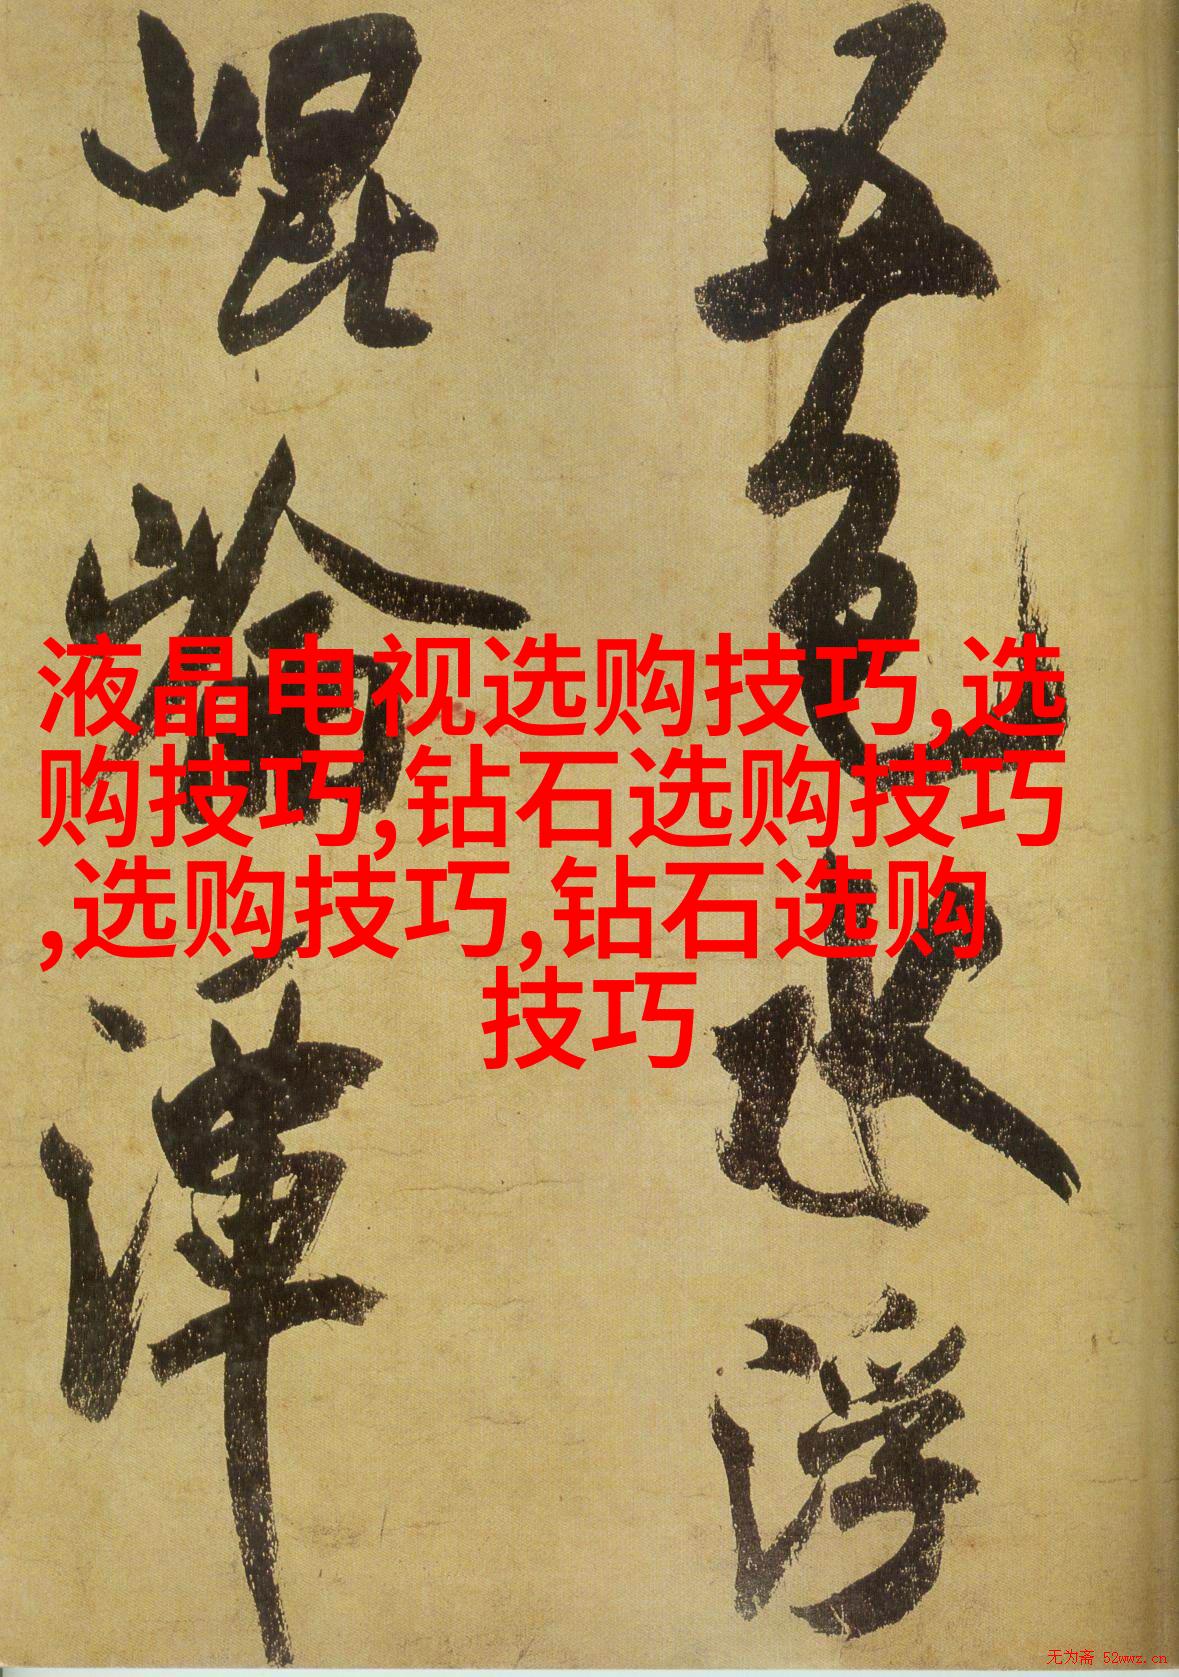 五色水浮
崐崘渾
液晶电视选购技巧,选
购技巧,钻石选购技巧
,选购技巧,钻石选购
技巧
无为斋 52wwz.cn